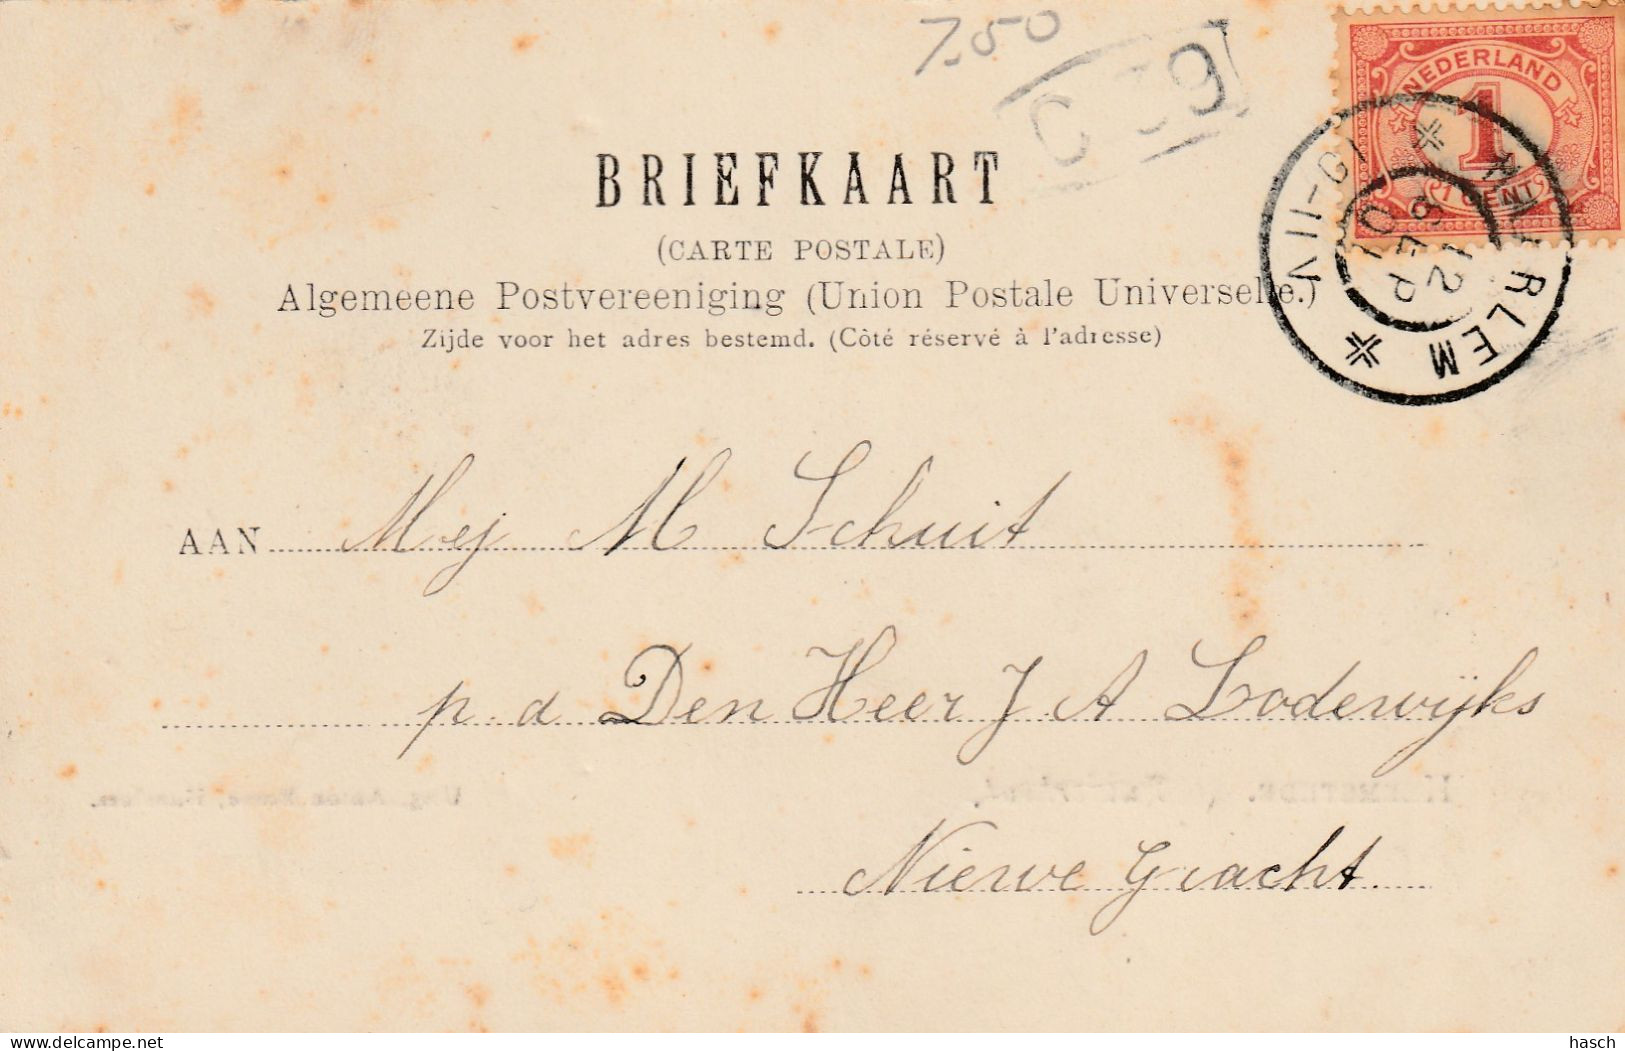 7.50
BRIEFKAART
(CARTE POSTALE)
Algemeene Postvereeniging (Union Postale Universelle.)
Zijde voor het adres bestemd. (Côté réservé à l'adresse)
NEDERLAND
1
1 CENT
HAARLEM
12 SEP 01
AAN Mej M Schuit
p. d Den Heer J. A Lodewijks
Nieuwe Gracht
delcampe.net
hasch